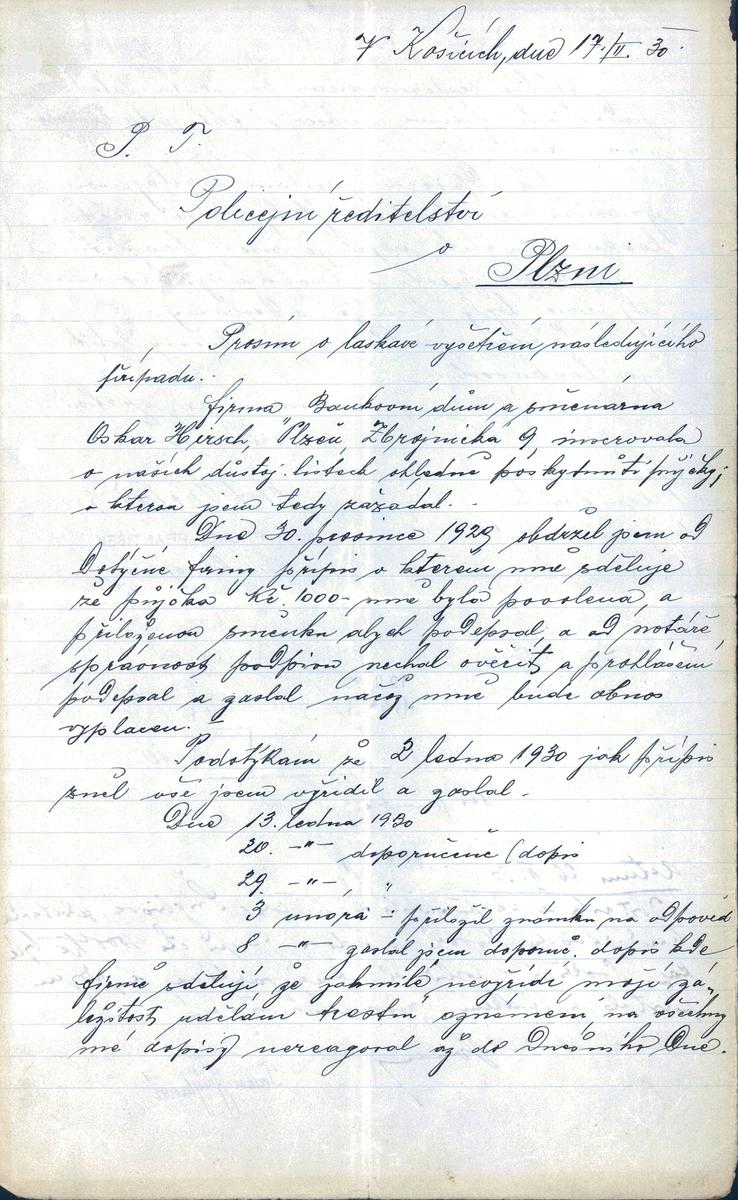 V Košicích, dne 17./II. 30
P. T.
Policejní ředitelství
v
Plzni.
Prosím o laskavé vyšetření následujícího
případu.
firma Bankovní dům a směnárna
Oskar Hirsch, Plzeň, Zbrojnická 9 inserovala
v našich důstoj. listech ohledně poskytnutí půjčky;
o kterou jsem tedy zažádal.
Dne 30. prosince 1929 obdržel jsem od
Dotyčné firmy přípis v kterém mně sděluje
že půjčka Kč. 1000- mně byla povolena, a
přiloženou směnku abych podepsal, a od notáře
správnost podpisu nechal ověřit, a prohlášení
podepsal a zaslal načež mně bude obnos
vyplacen.
Podotýkám že 2 ledna 1930 jak přípis
zněl vše jsem vyřídil a zaslal.
Dne 13. ledna 1930
20. -"- doporučeně (dopis
29. -"- , "
3 února - přiložil známku na odpověď
8 -"- zaslal jsem doporuč. dopis kde
firmě sděluji že jakmile nevyřídí moji zá-
ležitost, udělám trestní oznámení, na všechny
mé dopisy nereagoval až do Dnešního Dne.